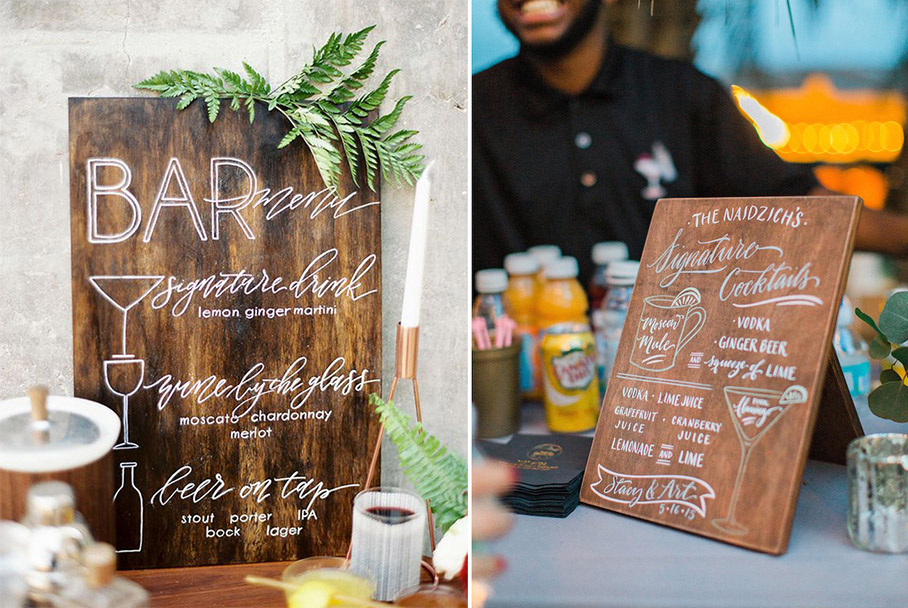 BAR menu
signature drink
lemon ginger martini
wine by the glass
moscato chardonnay
merlot
beer on tap
stout porter IPA
bock lager
· THE NAIDZICH'S ·
Signature
Cocktails
Moscow
Mule
· VODKA
· GINGER BEER
AND squeeze of LIME
VODKA · LIME JUICE
GRAPEFRUIT JUICE · CRANBERRY JUICE
LEMONADE AND LIME
Flamingo
Stacy & Art
5·16·15
Canada
Dry